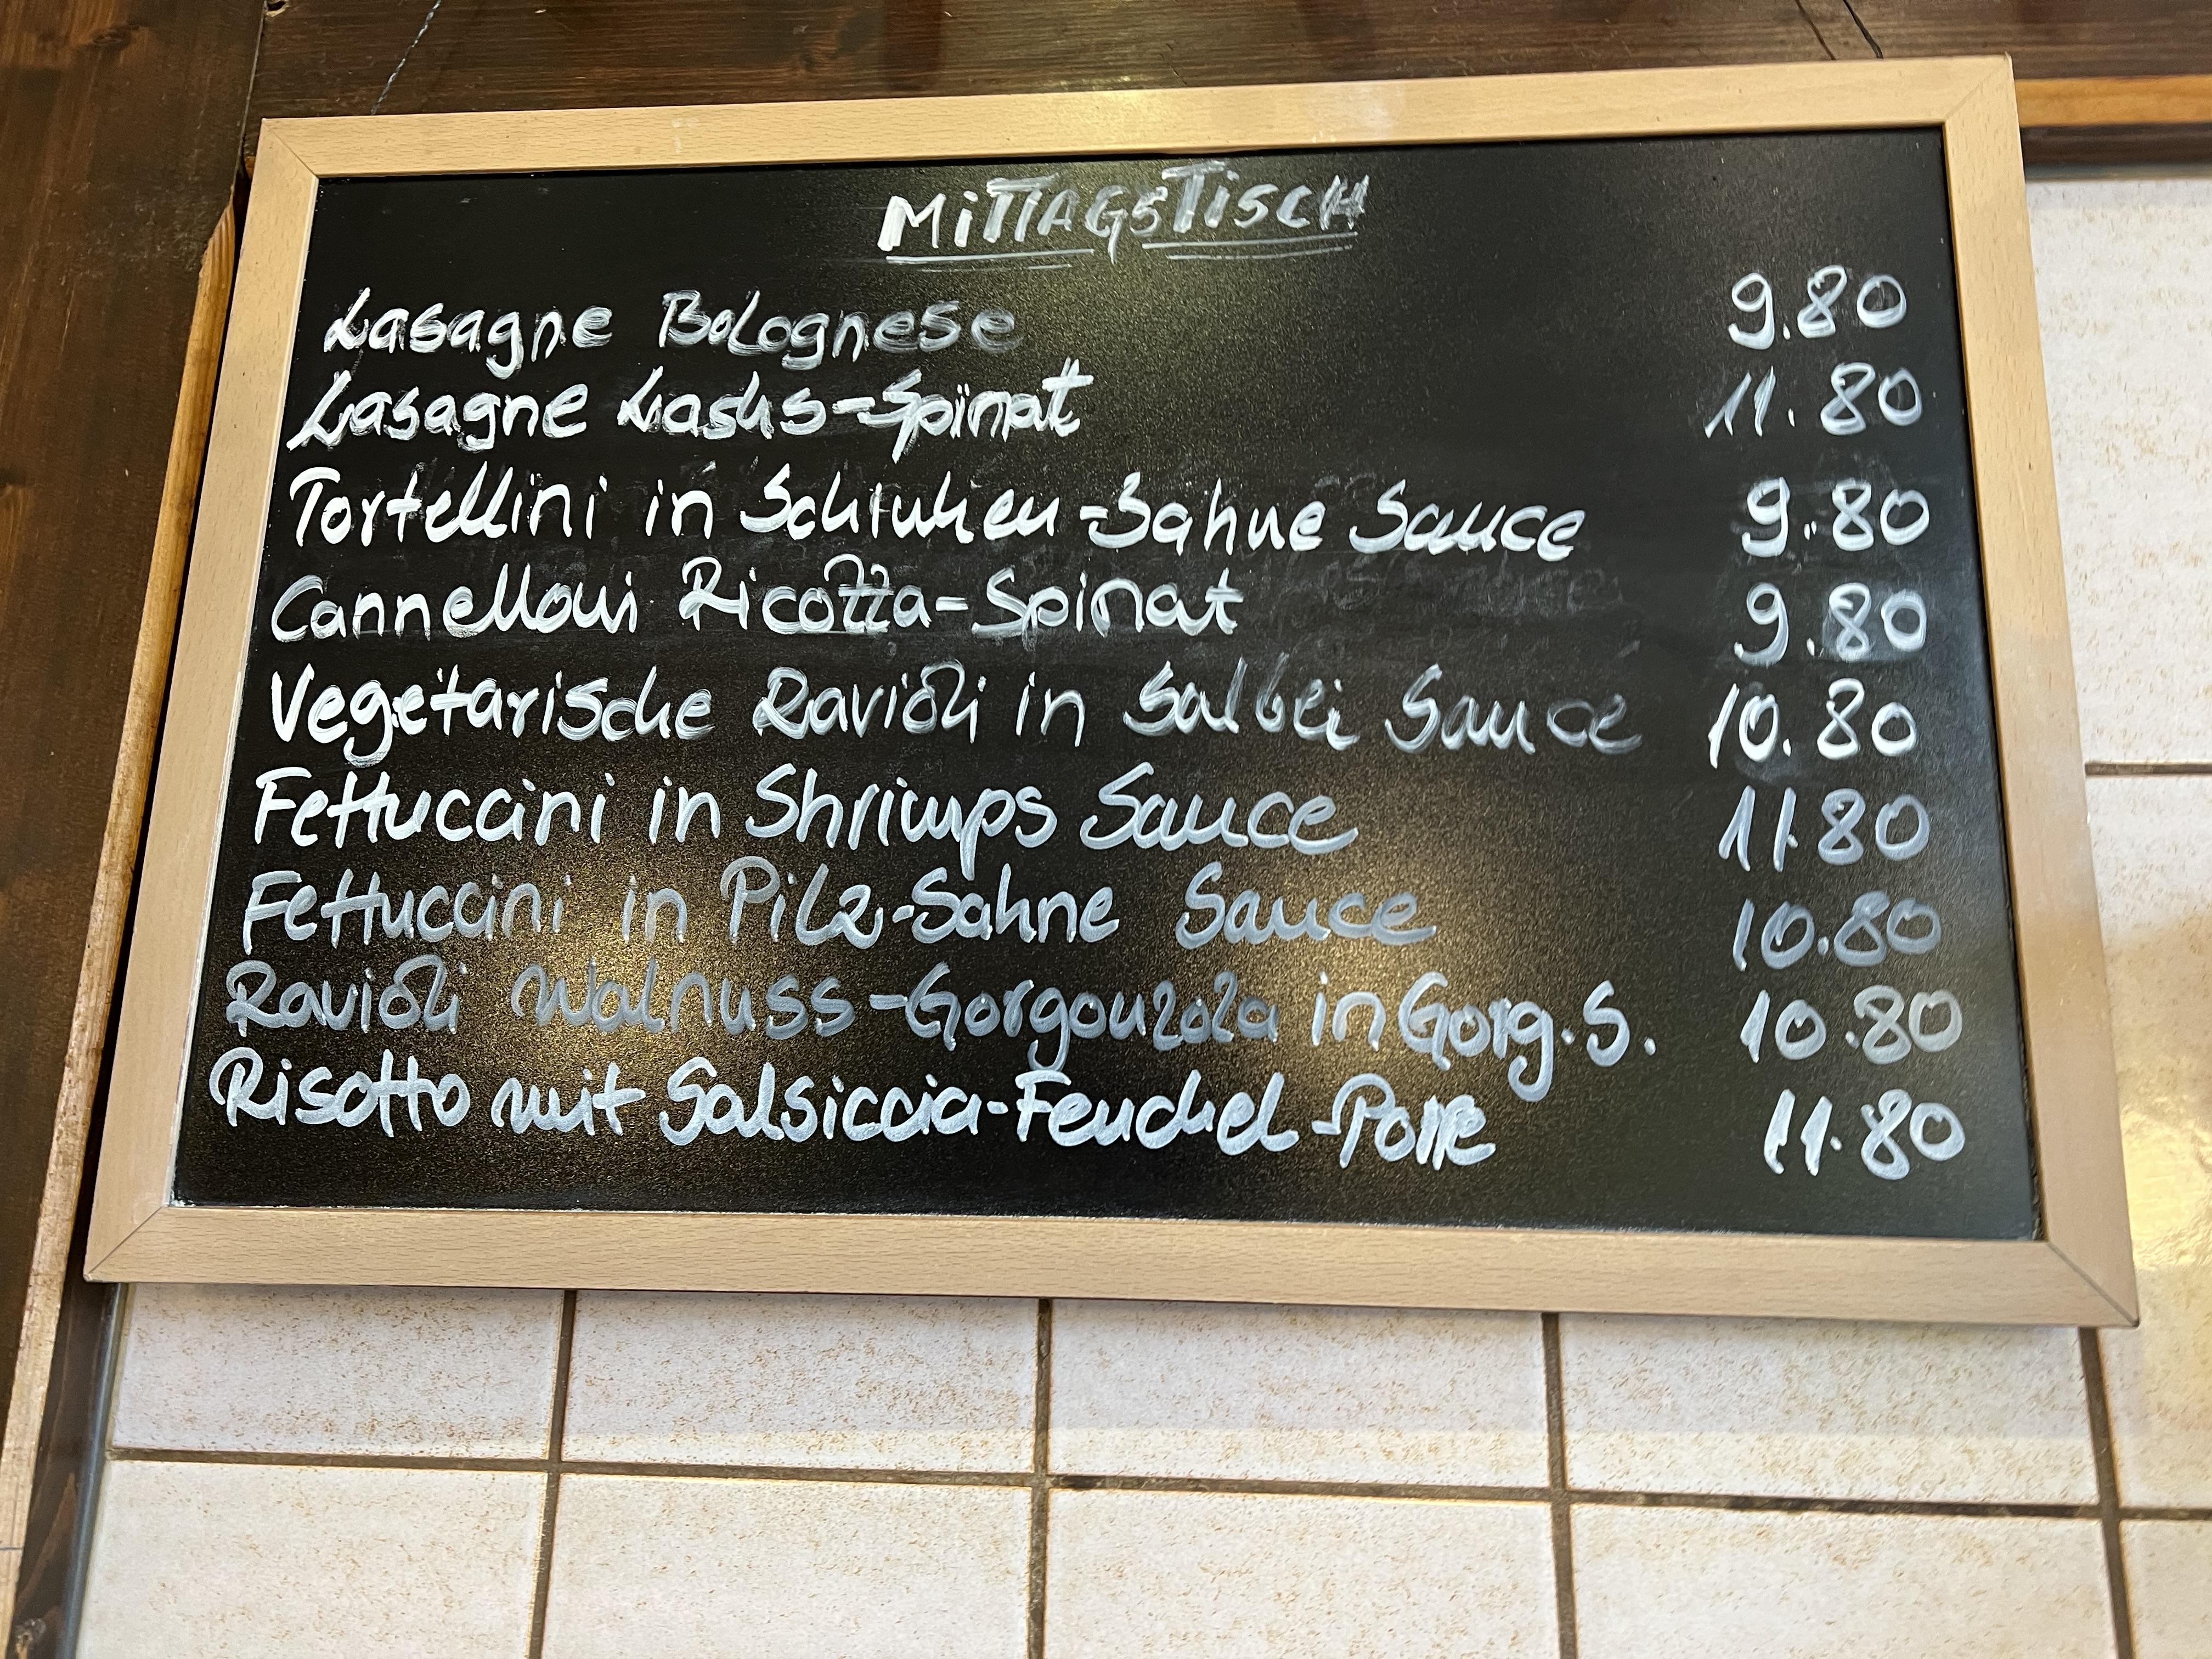 MiTTAGSTiSCH
Lasagne Bolognese 9.80
Lasagne Lachs-Spinat 11.80
Tortellini in Schinken-Sahne Sauce 9.80
Cannelloni Ricotta-Spinat 9.80
Vegetarische Ravioli in Salbei Sauce 10.80
Fettuccini in Shrimps Sauce 11.80
Fettuccini in Pilz-Sahne Sauce 10.80
Ravioli Walnuss-Gorgonzola in Gorg.S. 10.80
Risotto mit Salsiccia-Fenchel- 11.80